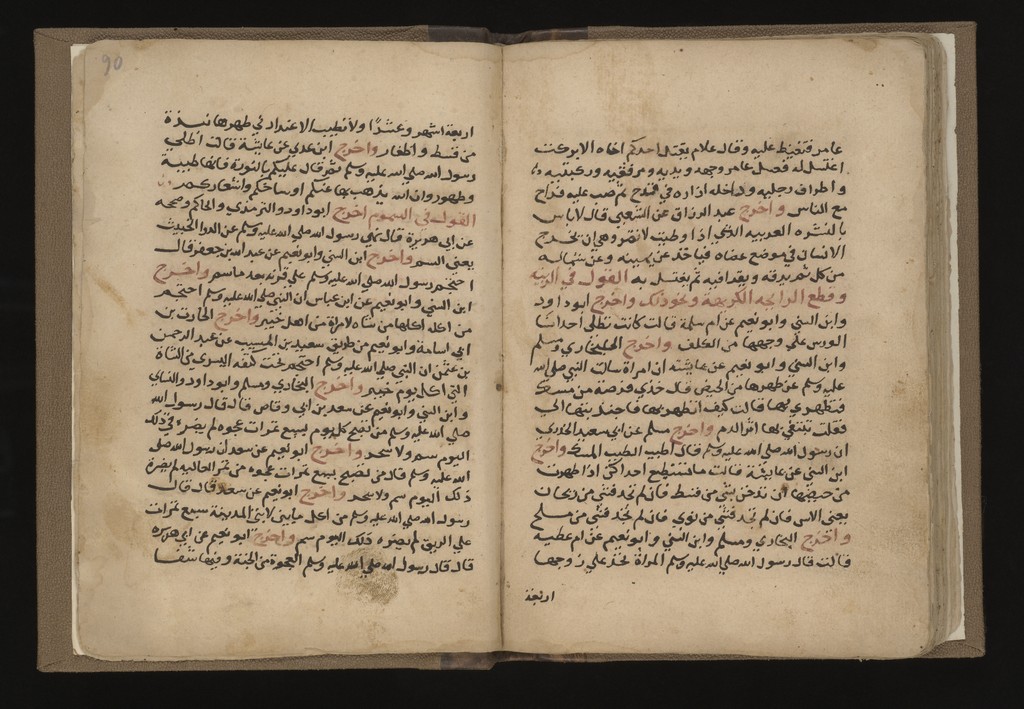 عامر فتغيظ عليه وقال علام يقتل احدكم اخاه الا بركت
اغتسل له فغسل عامر وجهه ويديه ومرفقيه وركبتيه
واطراف رجليه وداخله ازاره في قدح ثم صب عليه فراح
مع الناس واخرج عبد الرزاق عن الشعبي قال لا باس
بالنشره العربيه التي اذا وطيت لا تضر وهي ان يخرج
الانسان في موضع عضاه فياخذ عن يمينه وعن شماله
من كل ثم يدقه ويقرا فيه ثم يغتسل به القول في الزينه
وقطع الرايحه الكريهة ونحو ذلك واخرج ابو داود
وابن السني وابو نعيم عن ام سلمة قالت كانت تطلي احدانا
الورس علي وجهها من الكلف واخرج البخاري ومسلم
وابن السني وابو نعيم عن عايشه ان امراة سالت النبي صلي الله
عليه وسلم عن طهرها من الحيض قال خذي فرصة من مسك
فتطهري بها قالت كيف اتطهر بها فاجتذبتها الي
فقلت تتبعي بها اثر الدم واخرج مسلم عن ابي سعيد الخدري
ان رسول الله صلي الله عليه وسلم قال اطيب الطيب المسك واخرج
ابن السني عن عايشة قالت ما تستطيع احداكن اذا طهرت
من حيضها ان تدخن بشي من قسط فان لم تجد فشي من ريحان
يعني الاس فان لم تجد فشي من نوي فان لم تجد فشي من ملح
واخرج البخاري ومسلم وابن السني وابو نعيم عن ام عطيه
قالت قال رسول الله صلي الله عليه وسلم المراة تحد علي زوجها
اربعة
90
اربعة اشهر وعشرا ولا تطيب الا عند ادني طهرها نبذة
من قسط واظفار واخرج ابن عدي عن عايشة قالت اطلي
رسول الله صلي الله عليه وسلم ثم قال عليكم بالنورة فانها طيبة
وطهور وان الله يذهب بها عنكم اوساخكم واشعاركم
القول في السموم اخرج ابو داود والترمذي والحاكم وصححه
عن ابي هريرة قال نهي رسول الله صلي الله عليه وسلم عن الدوا الخبيث
يعني السم واخرج ابن السني وابو نعيم عن عبد الله بن جعفر قال
احتجم رسول الله صلي الله عليه وسلم علي قرنه بعد ما سم واخرج
ابن السني وابو نعيم عن ابن عباس ان النبي صلي الله عليه وسلم احتجم
من اكلة اكلها من شاه لامراة من اهل خيبر واخرج الحارث بن
ابي اسامة وابو نعيم من طريق سعيد بن المسيب عن عبد الرحمن
بن عثمن ان النبي صلي الله عليه وسلم احتجم تحت كتفه اليسري من الشاة
التي اكل يوم خيبر واخرج البخاري ومسلم وابو داود والنساي
وابن السني وابو نعيم عن سعد بن ابي وقاص قال قال رسول الله
صلي الله عليه وسلم من تصبح كل يوم بسبع تمرات عجوه لم يضره في ذلك
اليوم سم ولا سحر واخرج ابو نعيم عن سعد ان رسول الله صلي
الله عليه وسلم قال من تصبح بسبع تمرات عجوه من تمر العاليه لم يضرة
ذلك اليوم سم ولا سحر واخرج ابو نعيم عن سعد قال قال
رسول الله صلي الله عليه وسلم من اكل ما بين لابتي المدينة سبع تمرات
علي الريق لم يضره ذلك اليوم سم واخرج ابو نعيم عن ابي هريره
قال قال رسول الله صلي الله عليه وسلم العجوة من الجنة وفيها شفا